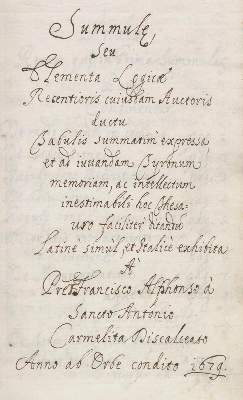 Summulę,
Seu
Elementa Logicę
Recentioris cuiusdam Auctoris
ductu
Tabulis summatim expressa
et ad iuvandam Tyronum
memoriam, ac intellectum
inestimabili hoc thesa-
uro faciliter ditandū
Latinè simùl, et Italicè exhibita
A
Pre Francisco Alphonso à
Sancto Antonio
Carmelita Discalceato
Anno ab Orbe condito 1679.